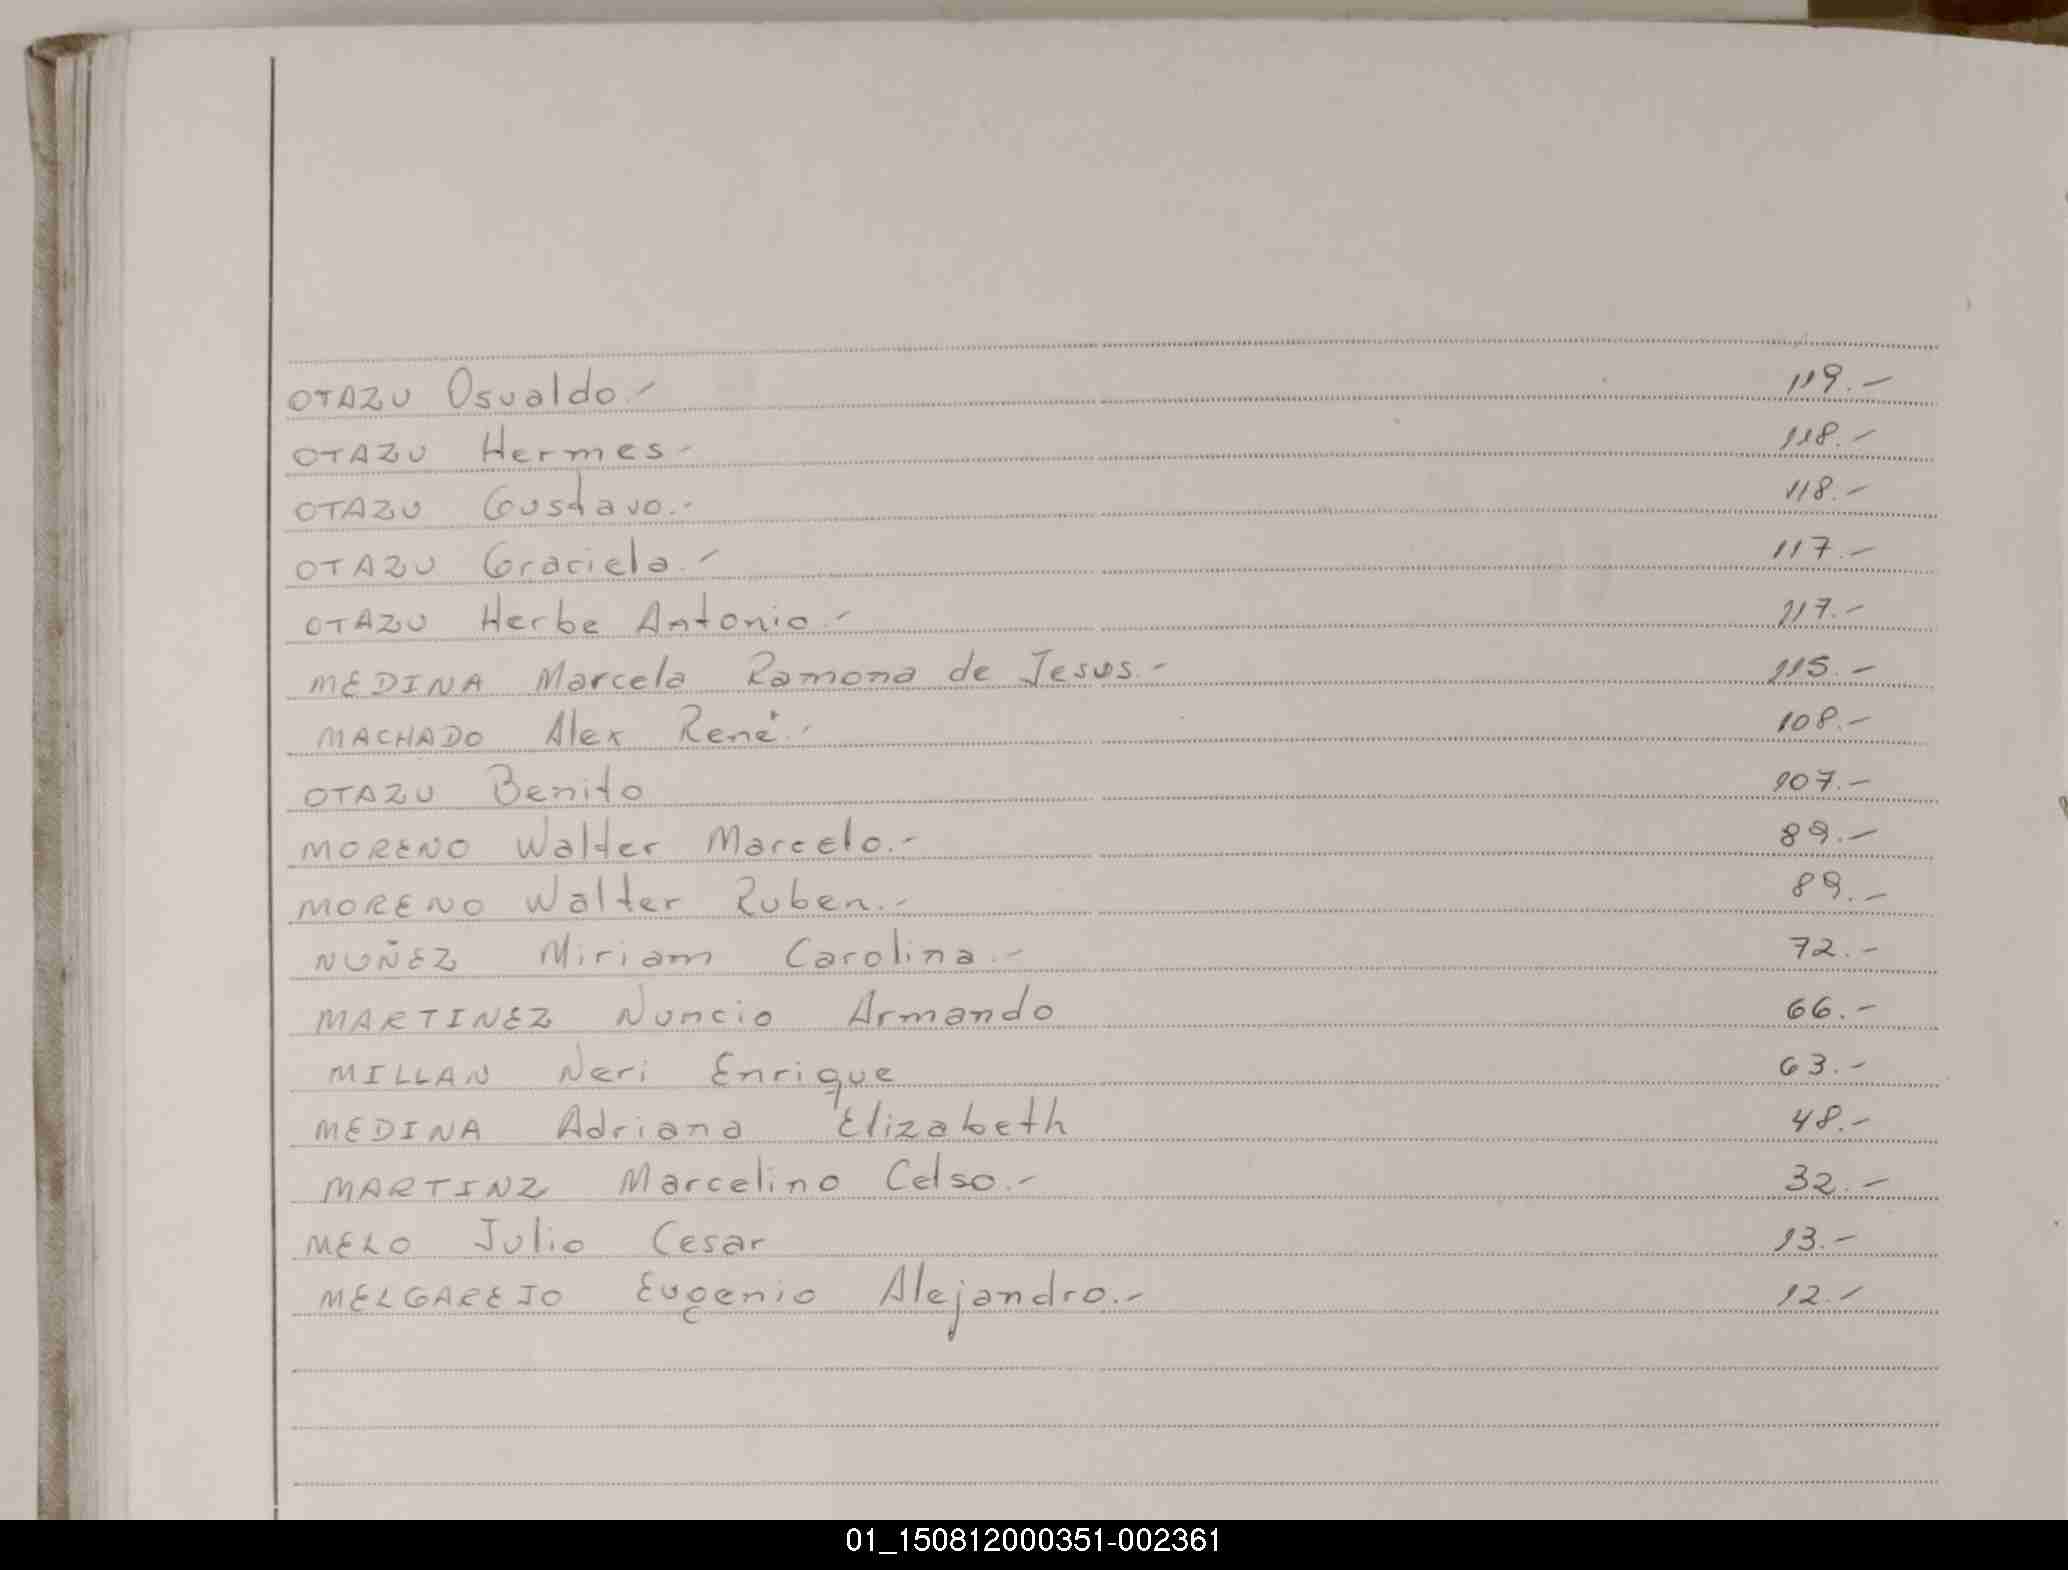 OTAZU Osvaldo.- 119.-
OTAZU Hermes.- 118.-
OTAZU Gustavo.- 118.-
OTAZU Graciela.- 117.-
OTAZU Herbe Antonio.- 117.-
MEDINA Marcela Ramona de Jesus.- 115.-
MACHADO Alex René.- 108.-
OTAZU Benito 107.-
MORENO Walter Marcelo.- 89.-
MORENO Walter Ruben.- 89.-
NUÑEZ Miriam Carolina.- 72.-
MARTINEZ Nuncio Armando 66.-
MILLAN Neri Enrique 63.-
MEDINA Adriana Elizabeth 48.-
MARTINZ Marcelino Celso.- 32.-
MELO Julio Cesar 13.-
MELGAREJO Eugenio Alejandro.- 12.-
01_150812000351-002361